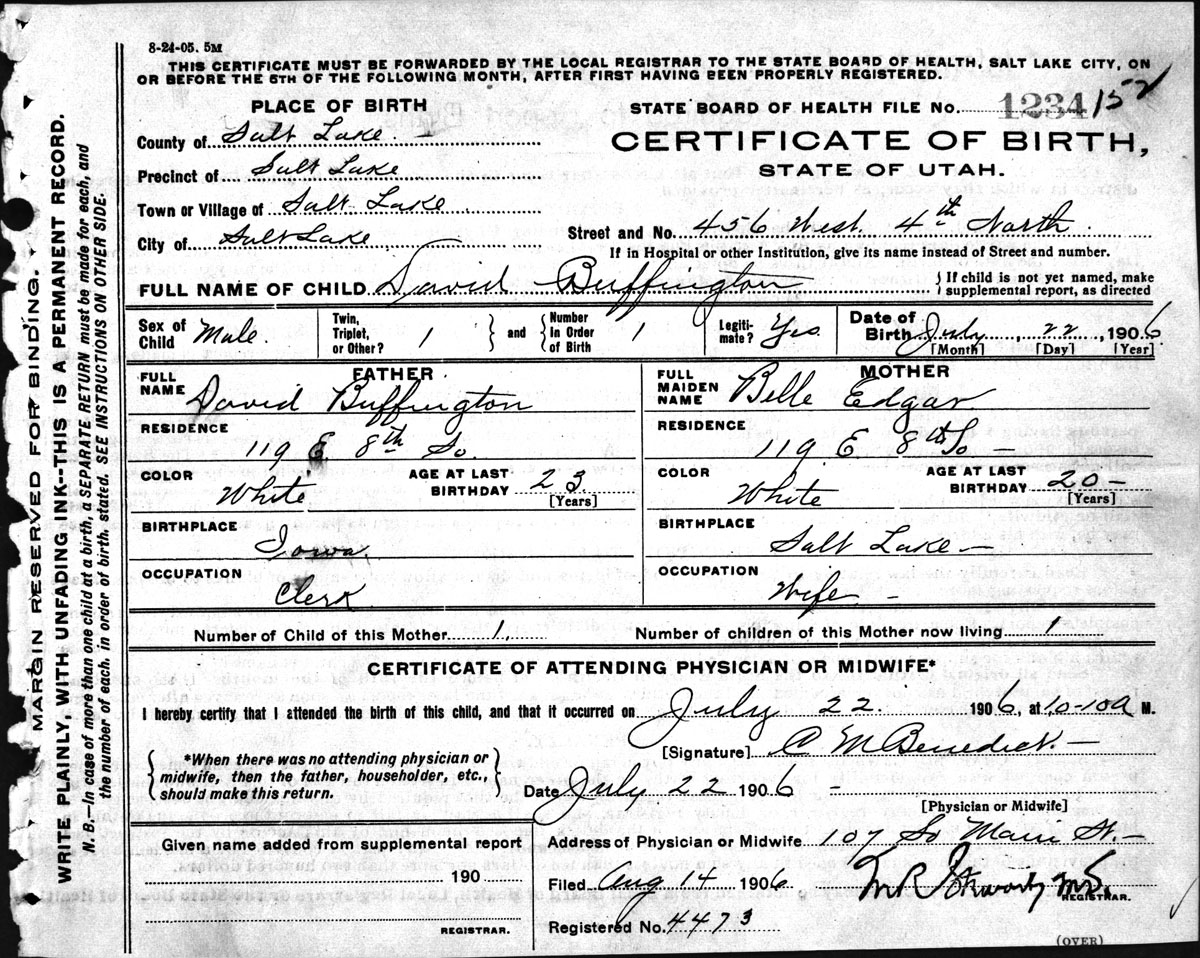 8-24-05. 5M
THIS CERTIFICATE MUST BE FORWARDED BY THE LOCAL REGISTRAR TO THE STATE BOARD OF HEALTH, SALT LAKE CITY, ON
OR BEFORE THE 5TH OF THE FOLLOWING MONTH, AFTER FIRST HAVING BEEN PROPERLY REGISTERED.
MARGIN RESERVED FOR BINDING.
WRITE PLAINLY, WITH UNFADING INK--THIS IS A PERMANENT RECORD.
N. B.—In case of more than one child at a birth, a SEPARATE RETURN must be made for each, and
the number of each, in order of birth, stated. SEE INSTRUCTIONS ON OTHER SIDE.
PLACE OF BIRTH
County of Salt Lake.
Precinct of Salt Lake
Town or Village of Salt Lake
City of Salt Lake
STATE BOARD OF HEALTH FILE No. 1234 152
CERTIFICATE OF BIRTH,
STATE OF UTAH.
Street and No. 456 West. 4th North
If in Hospital or other Institution, give its name instead of Street and number.
FULL NAME OF CHILD David Buffington
If child is not yet named, make
supplemental report, as directed
Sex of Child Male.
Twin, Triplet, or Other? 1
and
Number in Order of Birth 1
Legitimate? Yes
Date of Birth July 22 1906
[Month] [Day] [Year]
FATHER
FULL NAME David Buffington
RESIDENCE 119 E. 8th So.
COLOR White
AGE AT LAST BIRTHDAY 23
[Years]
BIRTHPLACE Iowa.
OCCUPATION Clerk
MOTHER
FULL MAIDEN NAME Belle Edgar.
RESIDENCE 119 E 8th So –
COLOR White
AGE AT LAST BIRTHDAY 20 –
[Years]
BIRTHPLACE Salt Lake –
OCCUPATION Wife –
Number of Child of this Mother 1.
Number of children of this Mother now living 1
CERTIFICATE OF ATTENDING PHYSICIAN OR MIDWIFE*
I hereby certify that I attended the birth of this child, and that it occurred on July 22. 1906, at 10-10a M.
[Signature] C M Benedict. –
*When there was no attending physician or
midwife, then the father, householder, etc.,
should make this return.
Date July 22 1906 –
[Physician or Midwife]
Given name added from supplemental report
190
REGISTRAR.
Address of Physician or Midwife 107 So Main St. –
Filed Aug 14 1906
REGISTRAR.
Registered No. 4473
(OVER)